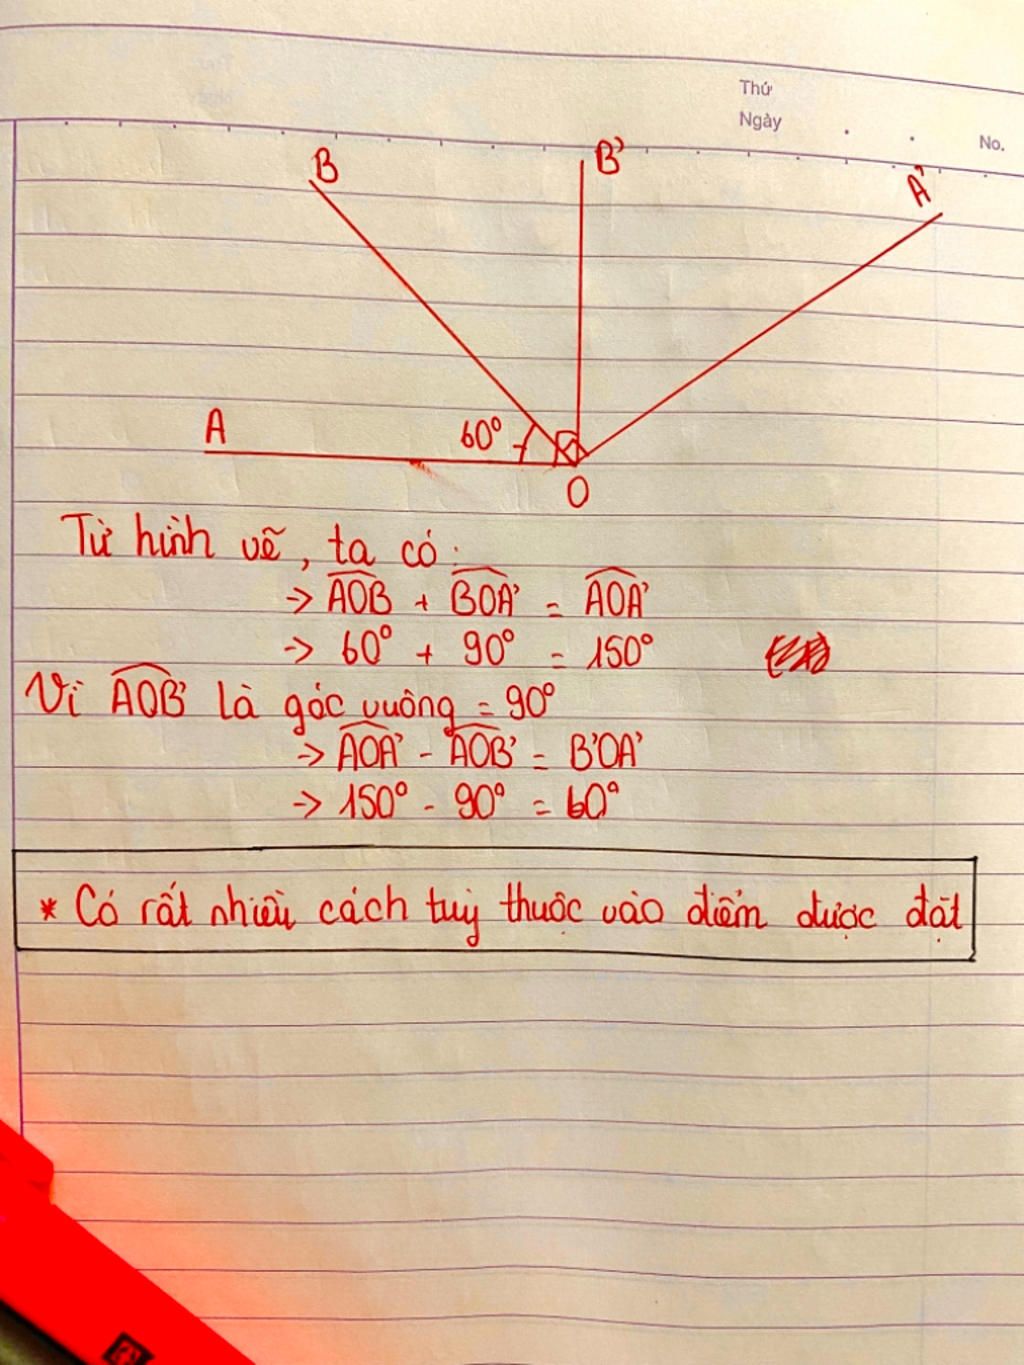 Thứ
Ngày
No.
B
B'
A'
A
60°
O
Từ hình vẽ, ta có:
-> AOB + BOA' = AOA'
-> 60° + 90° = 150°
Vì AOB' là góc vuông = 90°
-> AOA' - AOB' = B'OA'
-> 150° - 90° = 60°
* Có rất nhiều cách tuỳ thuộc vào điểm được đặt